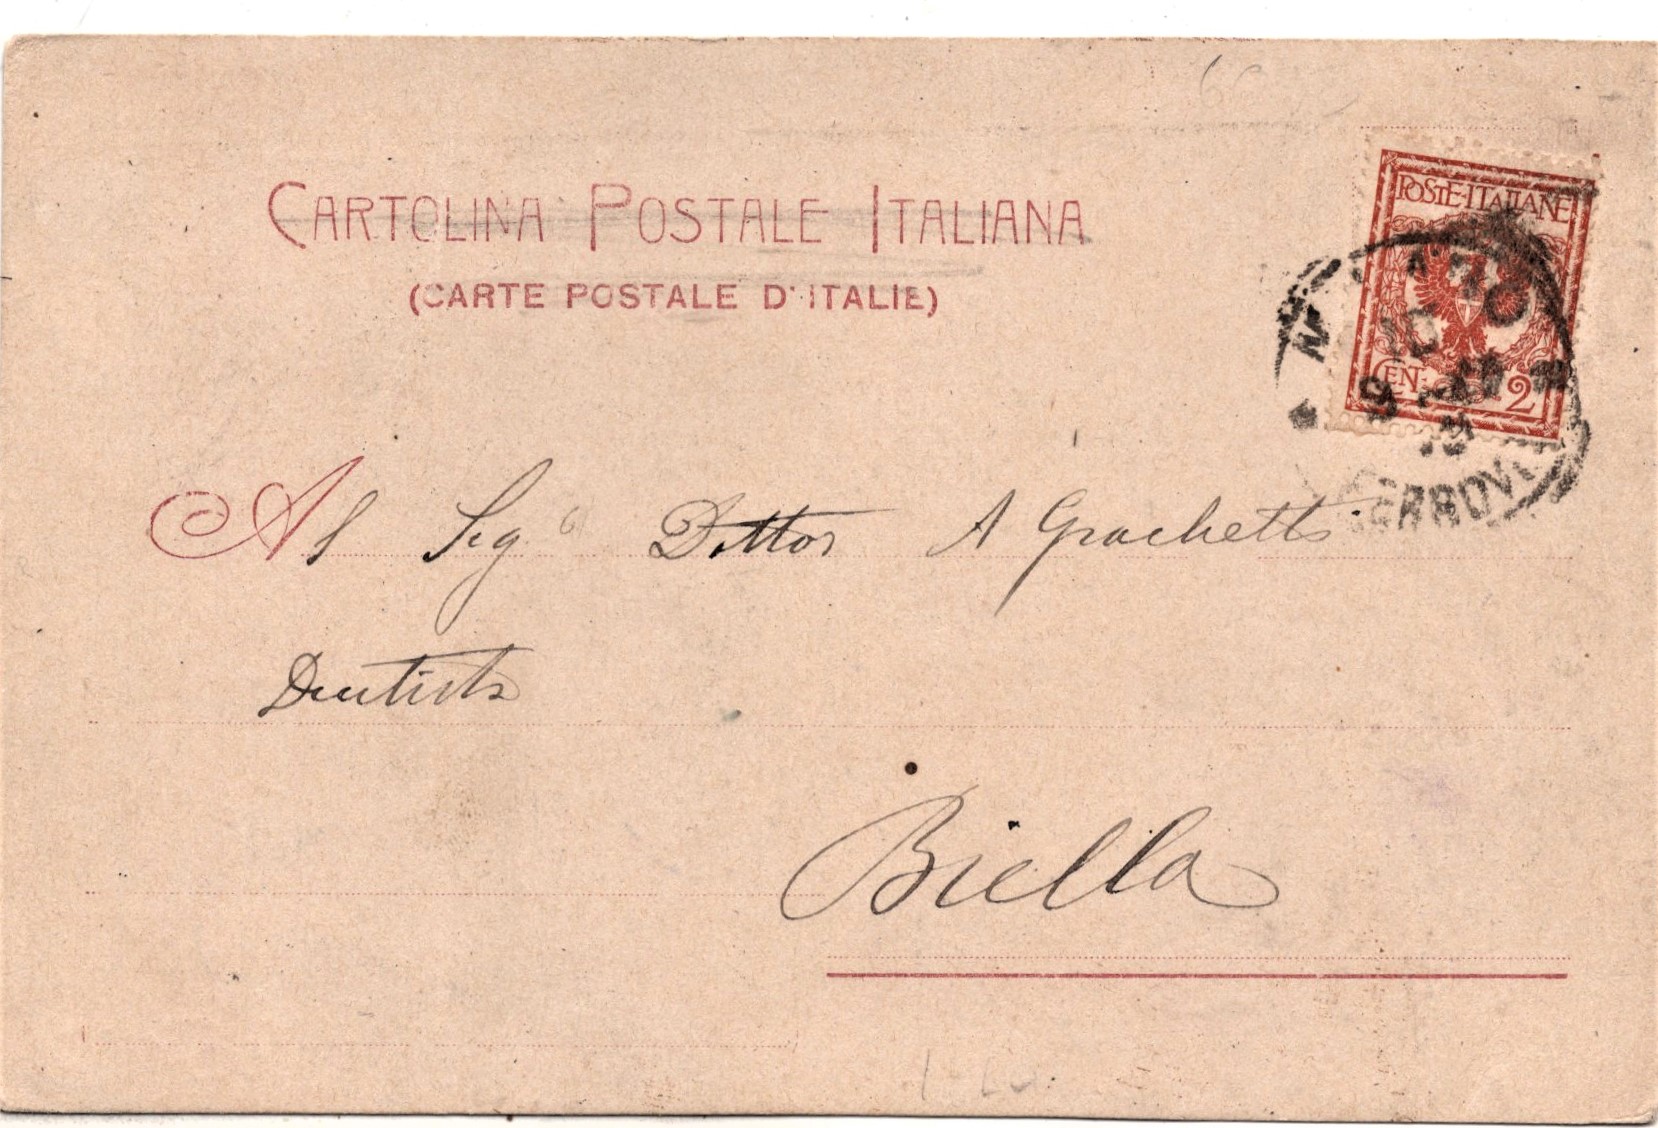 CARTOLINA POSTALE ITALIANA
(CARTE POSTALE D'ITALIE)
POSTE·ITALIANE
CEN: 2
10
9
FERROV
Al Sigo Dottor A Grachetti
Dentista
Biella